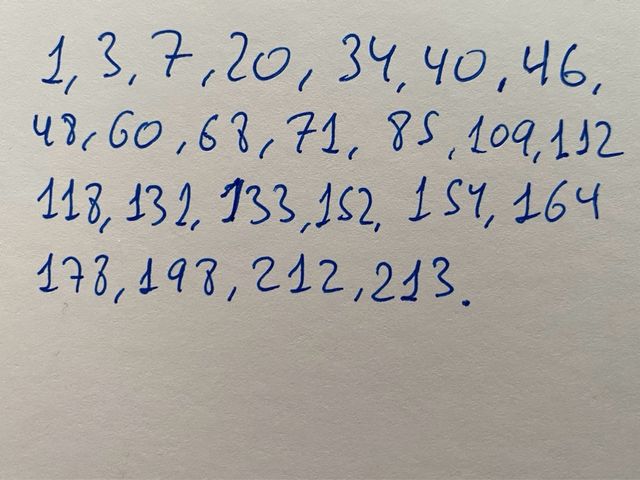 1, 3, 7, 20, 34, 40, 46,
48, 60, 68, 71, 85, 109, 112
118, 132, 133, 152, 154, 164
178, 198, 212, 213.